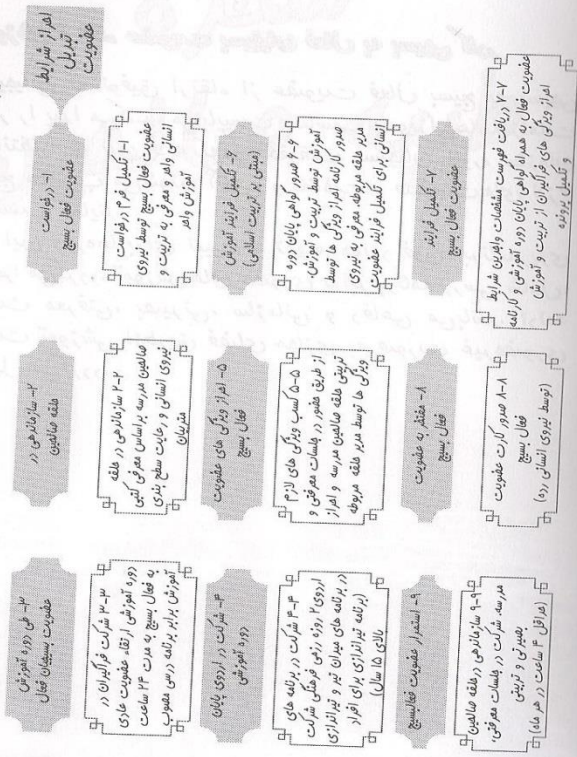 احراز شرایط
تبدیل
عضویت
۱- درخواست
عضویت فعال بسیج
۱-۱ تکمیل فرم درخواست
عضویت فعال بسیج توسط نیروی
انسانی واحد و معرفی به تربیت و
آموزش واحد
۲- سازماندهی در
حلقه صالحین
۲-۲ سازماندهی در حلقه
صالحین مدرسه براساس معرفی کتبی
نیروی انسانی و رعایت سطح بندی
متربیان
۳- طی دوره آموزش
عضویت بسیجیان فعال
۳-۳ شرکت فراگیران در
دوره آموزشی ارتقاء عضویت عادی
به فعال بسیج به مدت ۲۴ ساعت
آموزش برابر برنامه درسی مصوب
۴- شرکت در اردوی پایان
دوره آموزشی
۴-۴ شرکت در برنامه های
اردوی ۲ روزه رزمی فرهنگی شرکت
در برنامه های میدان تیر و تیراندازی
(برنامه تیراندازی برای افراد
بالای ۱۵ سال)
۵- احراز ویژگی های عضویت
فعال بسیج
۵-۵ کسب ویژگی های لازم
از طریق حضور در جلسات معرفتی و
تربیتی حلقه صالحین مدرسه و احراز
ویژگی ها توسط مدیر حلقه مربوطه
۶- تکمیل فرایند آموزش
(مبتنی بر تربیت اسلامی)
۶-۶ صدور گواهی پایان دوره
آموزش توسط تربیت و آموزش،
صدور کارنامه احراز ویژگی ها توسط
مدیر حلقه مربوطه معرفی به نیروی
انسانی برای تکمیل فرایند عضویت
۷- تکمیل فرایند
عضویت فعال بسیج
۷-۷ دریافت فهرست مشخصات واجدین شرایط
عضویت فعال به همراه گواهی پایان دوره آموزشی و کارنامه
احراز ویژگی های فراگیران از تربیت و آموزش
و تکمیل پرونده
۸- مفتخر به عضویت
فعال بسیج
۸-۸ صدور کارت عضویت
فعال بسیج
(توسط نیروی انسانی رده)
۹- استمرار عضویت فعال بسیج
۹-۹ سازماندهی در حلقه صالحین
مدرسه، شرکت در جلسات معرفتی،
بصیرتی و تربیتی
(حداقل ۴ ساعت در هر ماه)